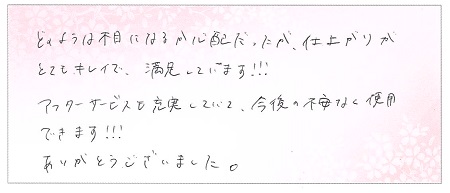 どのような木目になるか心配だったが、仕上がりが
とてもキレイで、満足しています!!!
アフターサービスも充実していて、今後の不安なく使用
できます!!!
ありがとうございました。